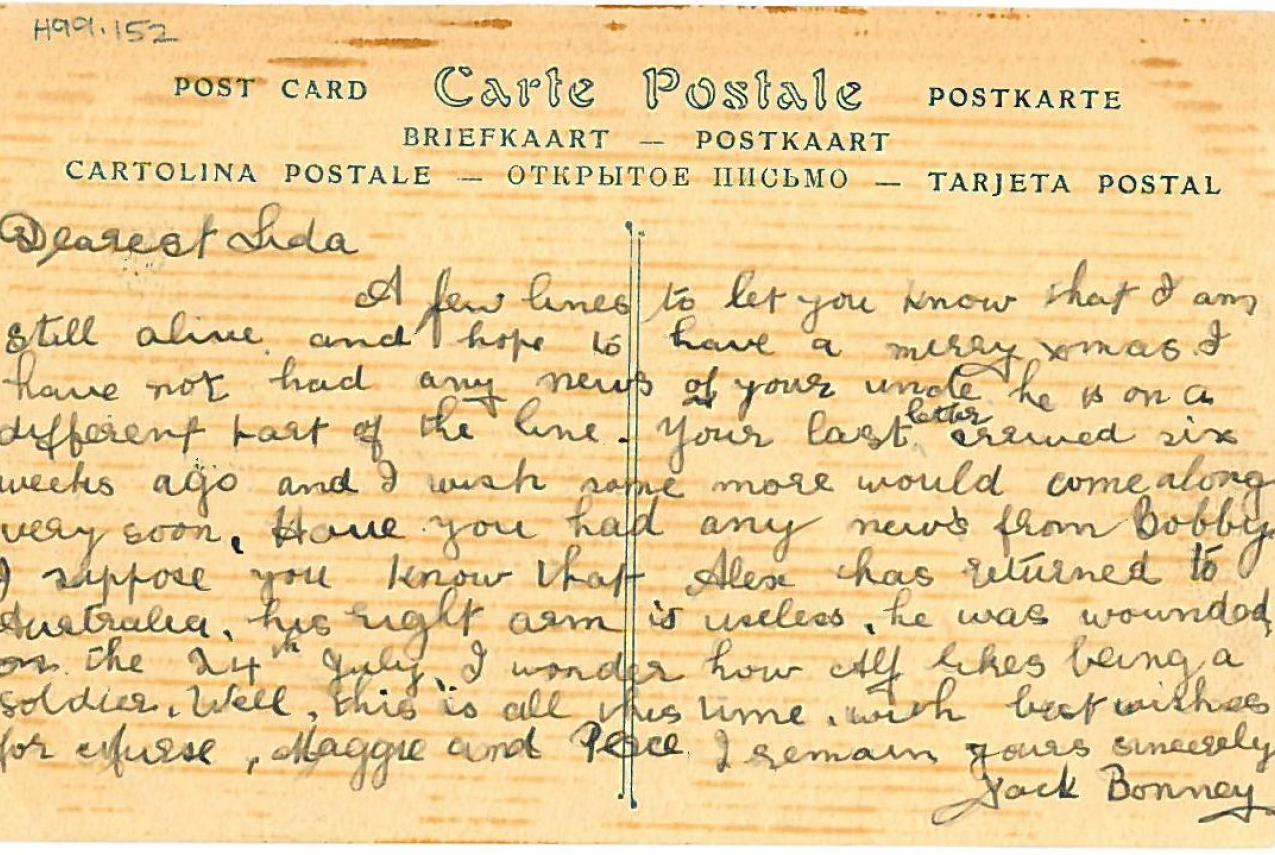 H99.152
POST CARD Carte Postale POSTKARTE
BRIEFKAART — POSTKAART
CARTOLINA POSTALE — ОТКРЫТОЕ ПИСЬМО — TARJETA POSTAL
Dearest Lida
A few lines to let you know that I am
still alive and hope to have a merry xmas. I
have not had any news of your uncle he is on a
different part of the line. Your last letter arrived six
weeks ago and I wish some more would come along
very soon. Have you had any news from Bobby.
I suppose you know that Alex has returned to
Australia, his right arm is useless, he was wounded
on the 24th July. I wonder how Alf likes being a
soldier. Well, this is all this time. with best wishes
for Nurse, Maggie and Perce I remain yours sincerely
Jack Bonney